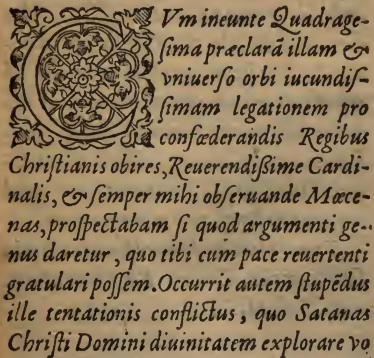 CVm ineunte Quadrage-
ſima præclarā illam &
vniuerſo orbi iucundiſ-
ſimam legationem pro
confœderandis Regibus
Chriſtianis obires, Reuerendißime Cardi-
nalis, & ſemper mihi obſeruande Mœce-
nas, proſpectabam ſi quod argumenti ge-
nus daretur, quo tibi cum pace reuertenti
gratulari poſſem. Occurrit autem ſtupēdus
ille tentationis conflictus, quo Satanas
Chriſti Domini diuinitatem explorare vo